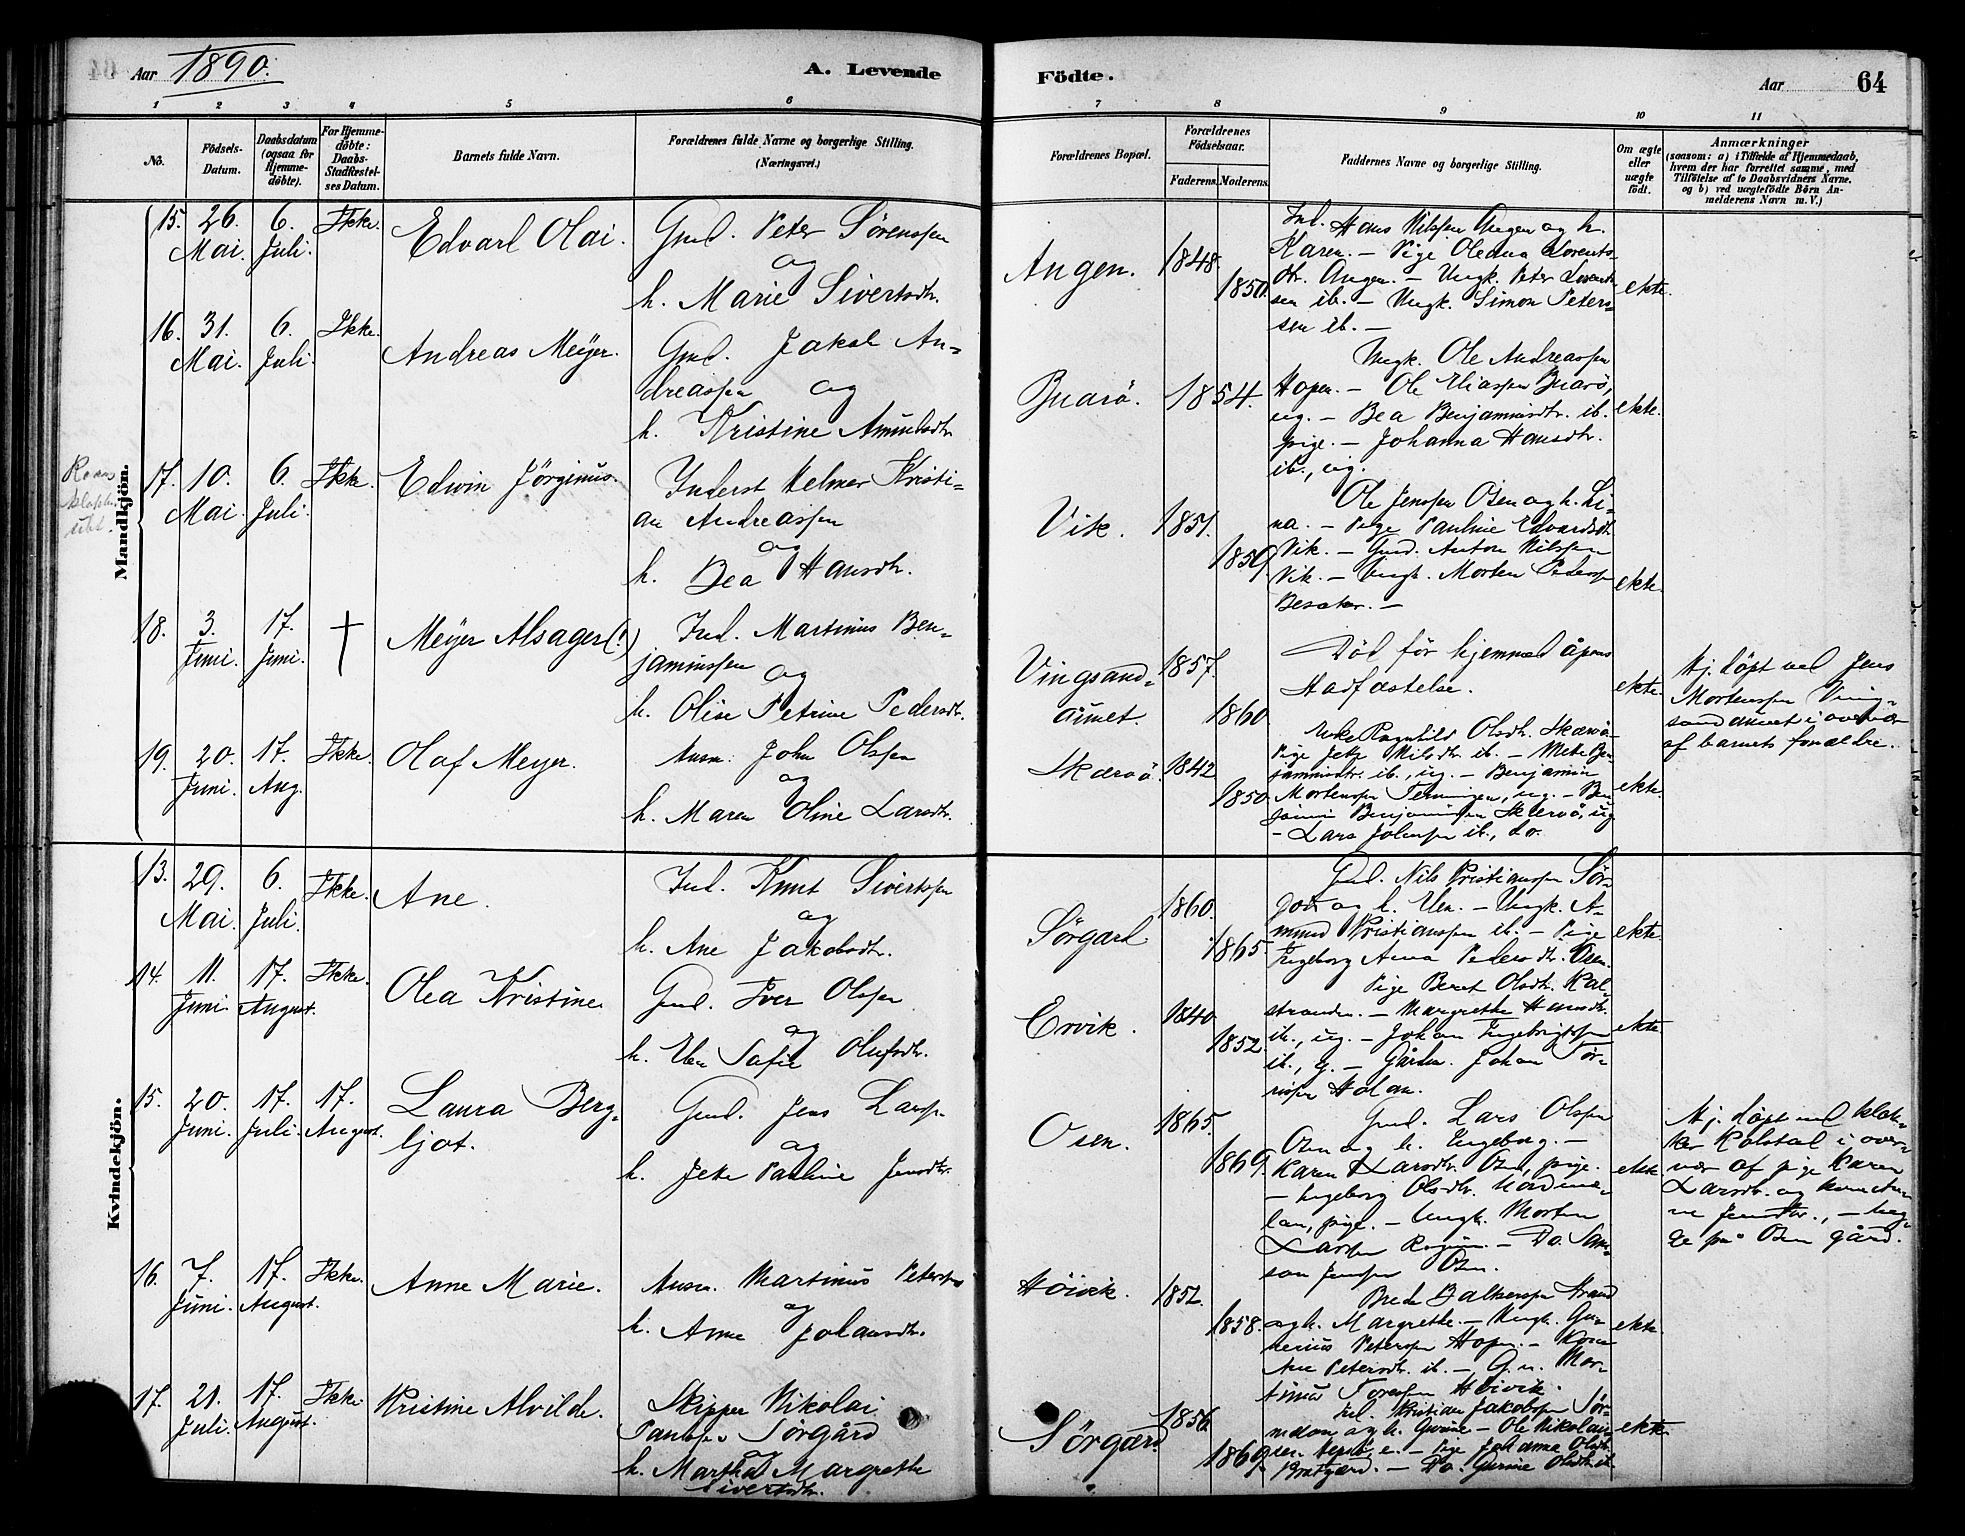 Aar 1890.
A. Levende
Födte.
Aar 64
1 2 3 4 5 6 7 8 9 10 11
No.
Födsels-
Datum.
Daabsdatum
(ogsaa for
Hjemme-
döbte).
For Hjemme-
döbte:
Daabs-
Stadfæstel-
ses Datum.
Barnets fulde Navn.
Forældrenes fulde Navne og borgerlige Stilling.
(Næringsvei.)
Forældrenes Bopæl.
Forældrenes
Födselsaar.
Faderens. Moderens.
Faddernes Navne og borgerlige Stilling.
Om ægte
eller
uægte
födt.
Anmærkninger
(saasom: a) i Tilfælde af Hjemmedaab,
hvem der har forrettet samme, med
Tilföielse af to Daabsvidners Navne.
og b) ved uægtefödte Börn An-
melderens Navn m. V.)
Mandkjön.
15. 26. Mai. 6. Juli. Ikke. Edvarl Olai.
Gmd. Peter Sørenssen
og
h. Marie Sivertsdtr.
Angen. 1848. 1850.
Ind. Hans Nilssen Angen og h.
Karen. - Pige Oleana Lorents-
dtr. Angen. - Ungk. Peter Lorent-
sen ib. - Ungk. Simon Peters-
sen ib. -
ekte.
16. 31. Mai. 6. Juli. Ikke. Andreas Meyer.
Gmd. Jakob An-
dreassen og
h. Kristine Amundsdtr.
Buarö. 1854.
Ungk. Ole Andreassen
Hopen. - Ole Eliassen Buarö,
ug. - Bea Benjaminsdtr. ib.
pige. - Johanna Hansdtr.
ib., ug.
ekte.
17. 10. Mai. 6. Juli. Ikke. Edwin Jörginus.
Inderst Helmer Kristi-
an Andreassen
og
h. Bea Hansdtr.
Vik. 1851. 1859
Ole Jenssen Osen og h. Li-
na. - Pige Pauline Edvardsdtr.
Vik. - Gmd. Anton Nilssen
Vik. - Ungk. Morten Pederssen
Besaker. -
ekte.
18. 3. Juni. 17. Juni. † Meyer Alsager (!)
Ind. Martinus Ben-
jaminssen
og
h. Oline Petrine Pedersdtr.
Vingsand-
aunet. 1857. 1860
Död för hjemmedåpens
Stadfæstelse.
ekte.
Hj. döpt ved Jens
Mortenssen Ving-
sandaunet i overvær
af barnets forældre.
19. 20. Juni. 17. Aug. Ikke. Olaf Meyer.
Ausn. John Olssen
og
h. Maren Oline Larsdtr.
Skærvö. 1842 1850.
Enke Ragnhild Olsdtr. Skærvö-
Pige Jetze Nilsdtr. ib. - Mette Ben-
jaminsdtr. ib., ug. - Benjamin
Mortenssen Terningen, ug. - Ben-
jamin Benjaminssen Skjervö, ug
- Lars Johnssen ib., do.
ekte.
Kvindekjön.
13. 29. Mai. 6. Juli. Ikke. Ane.
Ind. Knut Sivertssen
og
h. Ane Jakobsdtr.
Sörgard 1860. 1865.
Gmd. Nils Kristianssen Sör-
gård og h. Elen. - Ungk. A-
mund Kristianssen ib. - Pige
Ingeborg Anna Pedersdtr. Osen.
ekte.
14. 11. Juni. 17. August. Ikke. Olea Kristine
Gmd. Iver Olssen
og
h. Elen Sofie Olufsdtr.
Ervik. 1840 1852.
Pige Beret Olsdtr. Kal-
stranden. - Margrethe Hansdtr.
ib., ug. - Johan Ingebrigtssen
ib., g. - Gårdm. Johan Tör-
rissen Holan.
ekte
15. 20. Juni. 17. Juli. 17. August. Laura Berg-
ljot.
Gmd. Jens Larssen
og
h. Jette Pauline Jensdtr.
Osen. 1865. 1869.
Gmd. Lars Olssen
Osen og h. Ingeborg. -
Karen Larsdtr. Osen, pige.
- Ingeborg Olsdtr. Nordme-
lan, pige. - Ungk. Morten
Larssen - Do. Sam-
son Jenssen Osen.
ekte.
Hj. döpt ved klok-
ker Kolstad i over-
vær af pige Karen
Larsdtr. og
Jensdtr., - beg-
ge på Osen gård.
16. 7. Juni. 17. August. Ikke. Anne Marie.
Ausn. Martinus Peterssen
og
h. Anne Johansdtr.
Höivik. 1852. 1858.
Strand
og h. Margrethe. - Ungk. Gu-
nerius Peterssen Hopen. -
Petersdtr. ib. - G.m. Mar-
tinus Höivik.
ekte.
17. 21. Juli. 17. August. Ikke. Kristine Alvilde.
Skipper Nikolai
Sörgård
og
h. Martha Margrethe
Sivertsdtr.
Sörgård 1856 1869
Ind. Kristian Jakobssen Sör-
medan og h. Gurine - Ole Nikolais-
sen - Pige Johanna Olsdtr.
Bratgjærd. - Do. Gurine Olsdtr. ib
ekte.